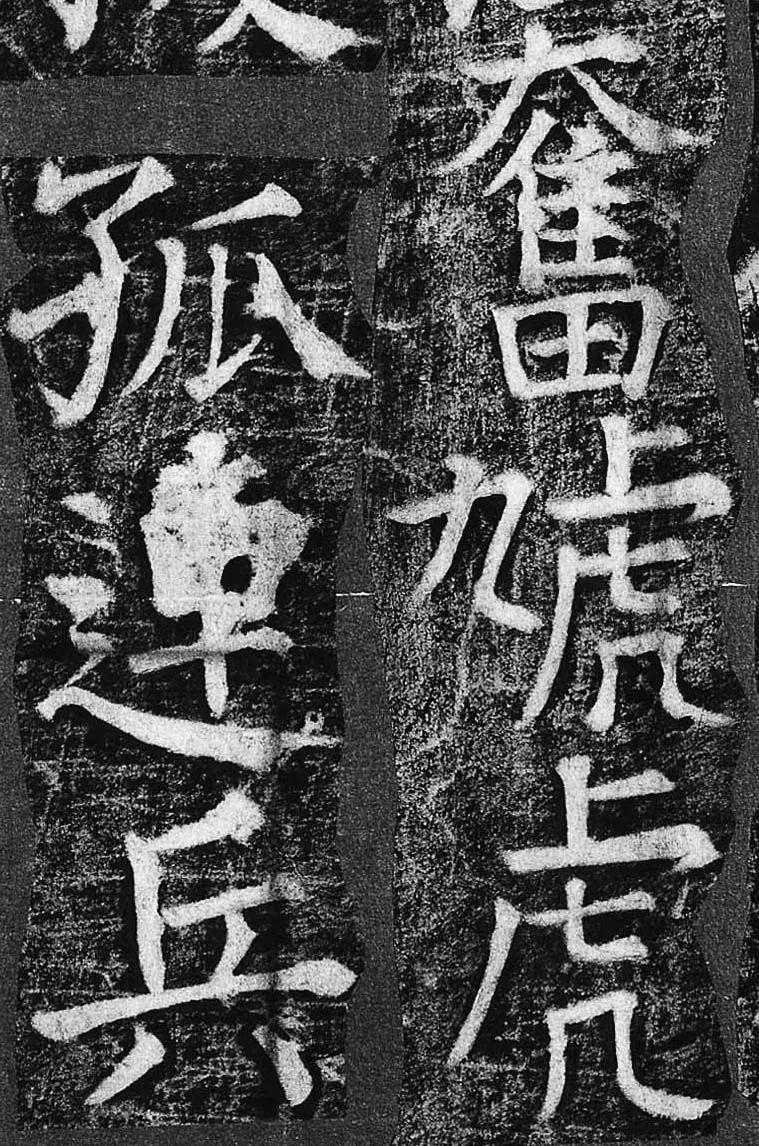 奮虓虎
孤連兵